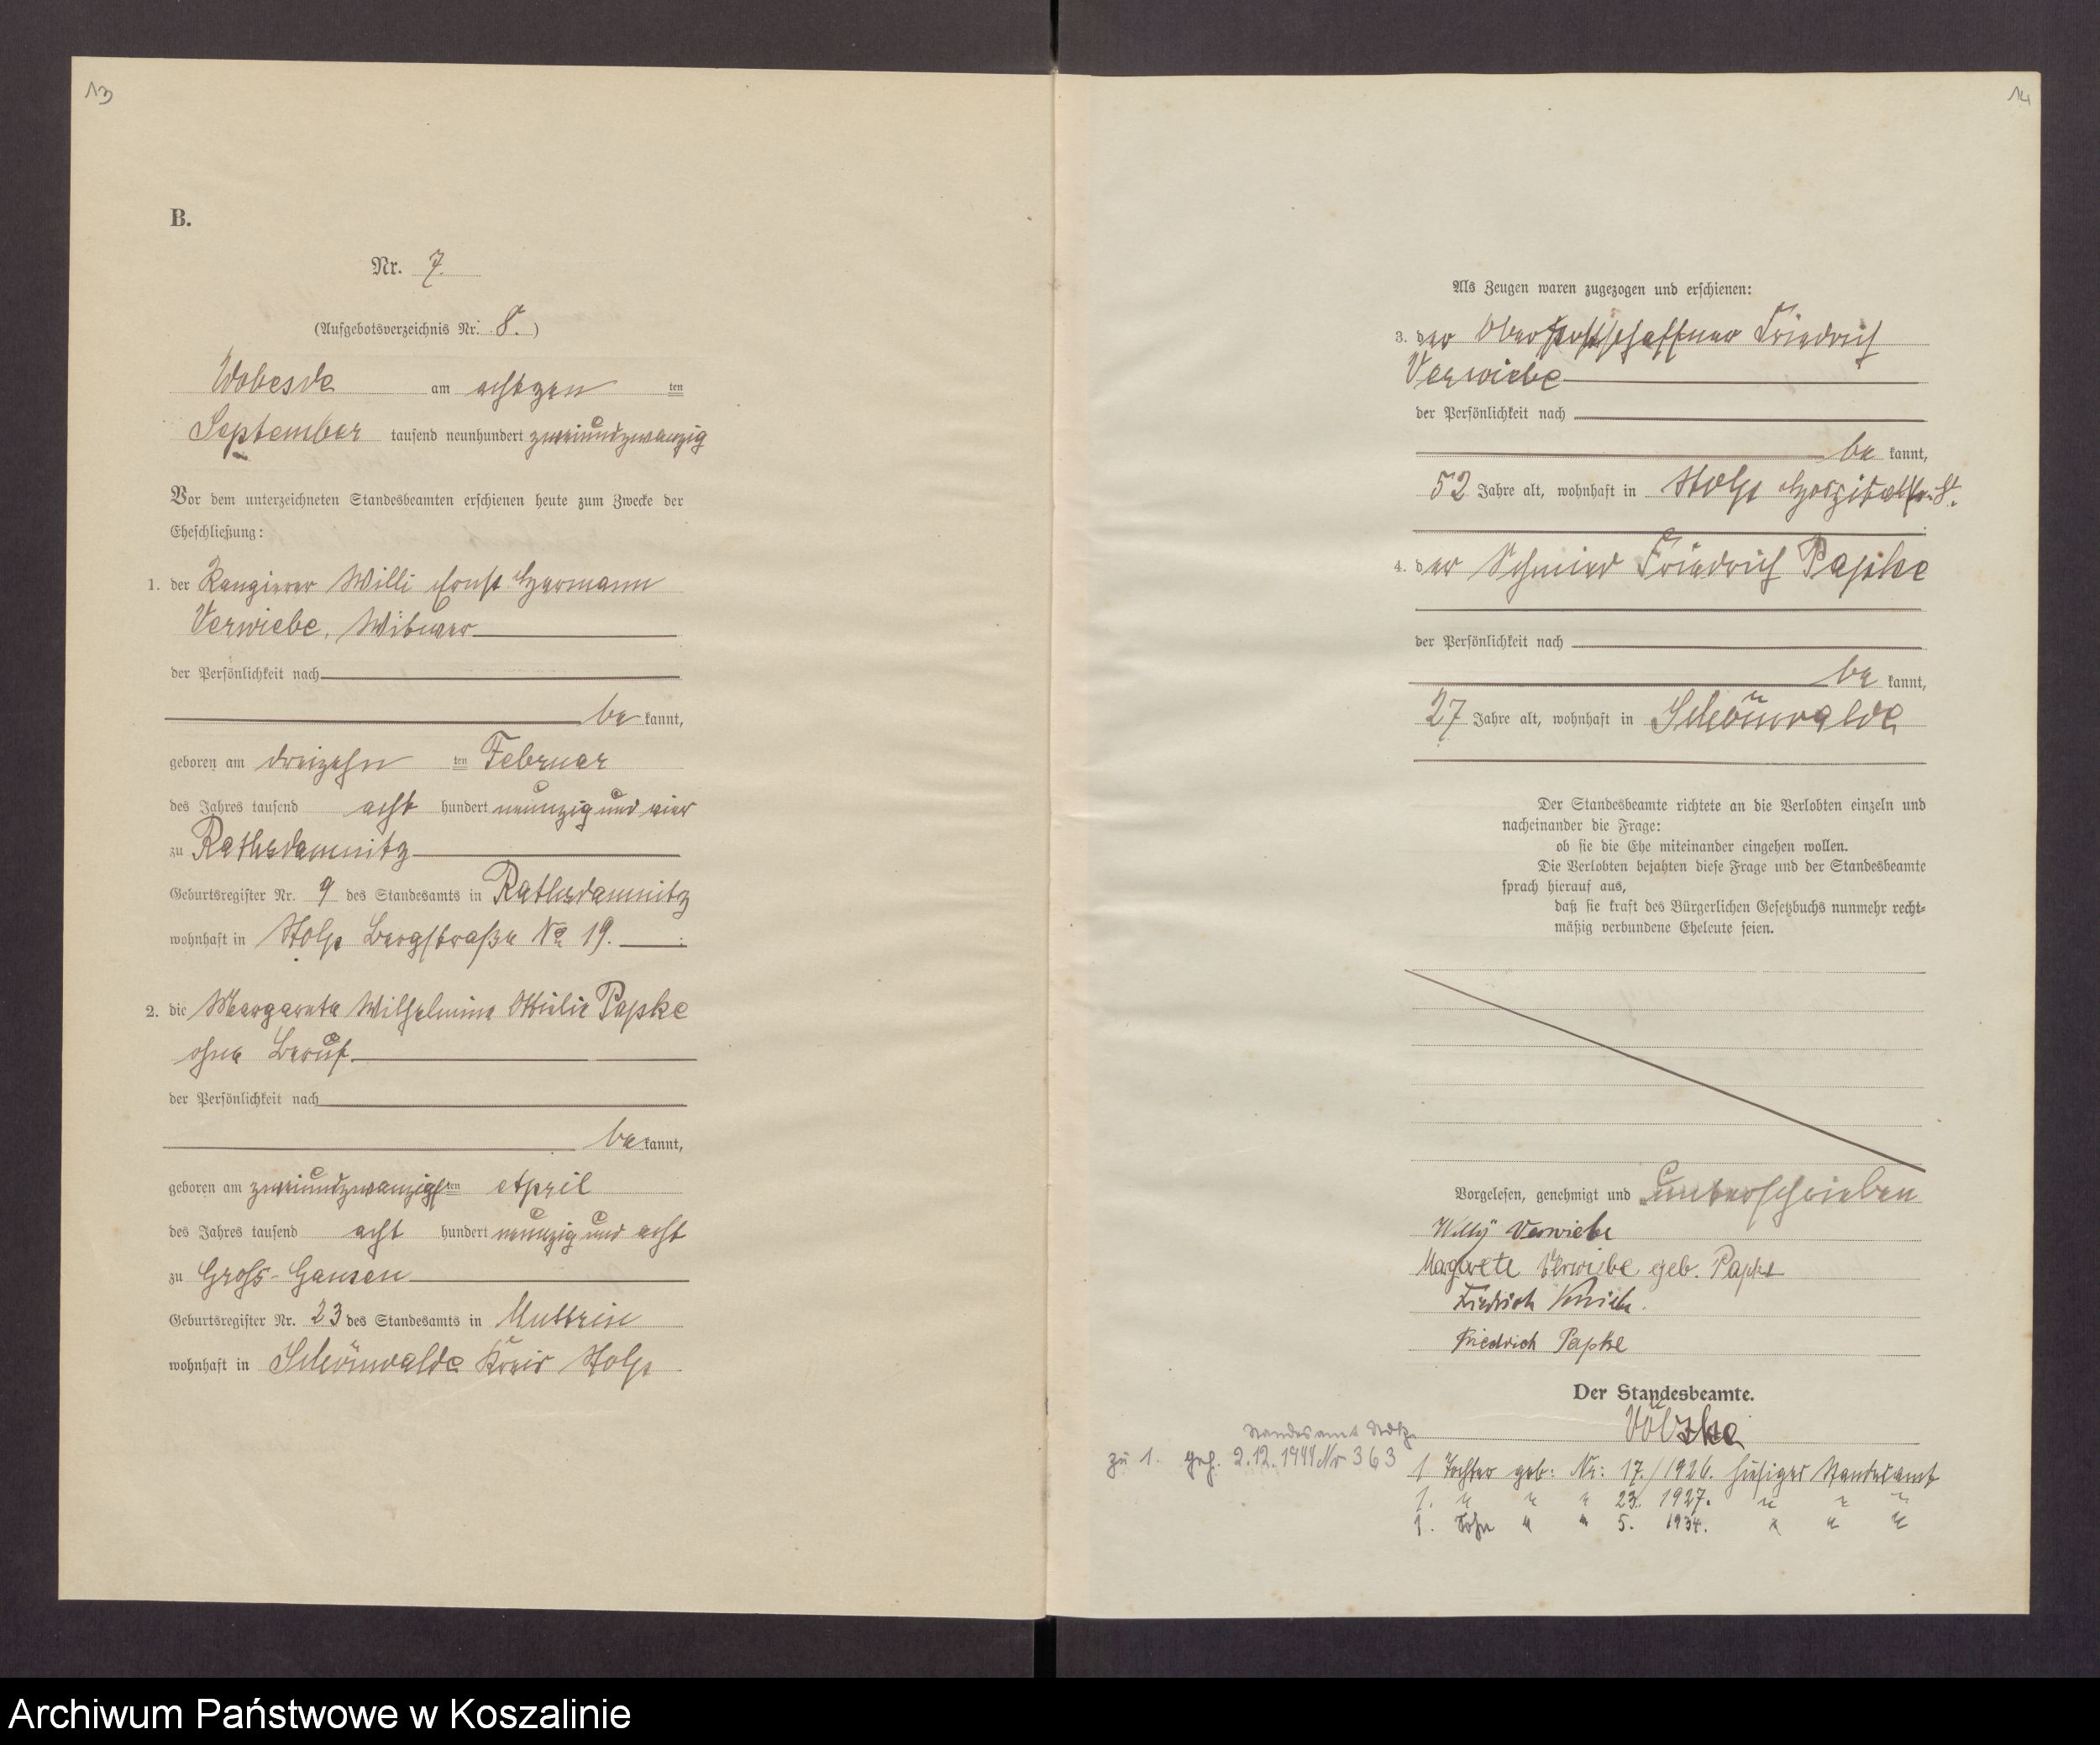 13
B.
Nr. 7.
(Aufgebotsverzeichnis Nr. 8.)
Wobesde am achtzehn ten
September tausend neunhundert zweiundzwanzig
Vor dem unterzeichneten Standesbeamten erschienen heute zum Zwecke der
Eheschließung:
1. der Rangierer Willi Ernst Hermann
Verwiebe, Witwer
der Persönlichkeit nach
be kannt,
geboren am dreizehn ten Februar
des Jahres tausend acht hundert neunzig und vier
zu Rathsdamnitz
Geburtsregister Nr. 9 des Standesamts in Rathsdamnitz
wohnhaft in Stolp Bergstraße No 19.
2. die Margarete Wilhelmine Ottilie Papke
ohne Beruf.
der Persönlichkeit nach
be kannt,
geboren am zweiundzwanzigsten April
des Jahres tausend acht hundert neunzig und acht
zu Gross-Gansen
Geburtsregister Nr. 23 des Standesamts in Muttrin
wohnhaft in Schönwalde Kreis Stolp
14
Als Zeugen waren zugezogen und erschienen:
3. der Oberpostschaffner Friedrich
Verwiebe
der Persönlichkeit nach
be kannt,
52 Jahre alt, wohnhaft in Stolp
4. der Schmied Friedrich Papke
der Persönlichkeit nach
be kannt,
27 Jahre alt, wohnhaft in Schönwalde
Der Standesbeamte richtete an die Verlobten einzeln und
nacheinander die Frage:
ob sie die Ehe miteinander eingehen wollen.
Die Verlobten bejahten diese Frage und der Standesbeamte
sprach hierauf aus,
daß sie kraft des Bürgerlichen Gesetzbuchs nunmehr recht-
mäßig verbundene Eheleute seien.
Vorgelesen, genehmigt und unterschrieben
Willy Verwiebe
Margarete Verwiebe geb. Papke
Friedrich Verwiebe.
Friedrich Papke
Der Standesbeamte.
Völzke
Standesamt
zu 1. 2.12.1944 Nr 363
1 Tochter geb: Nr: 17./1926. hiesiges Standesamt
1. " " " 23. 1927. " " "
1. Sohn " " 5. 1934. " " "
Archiwum Państwowe w Koszalinie